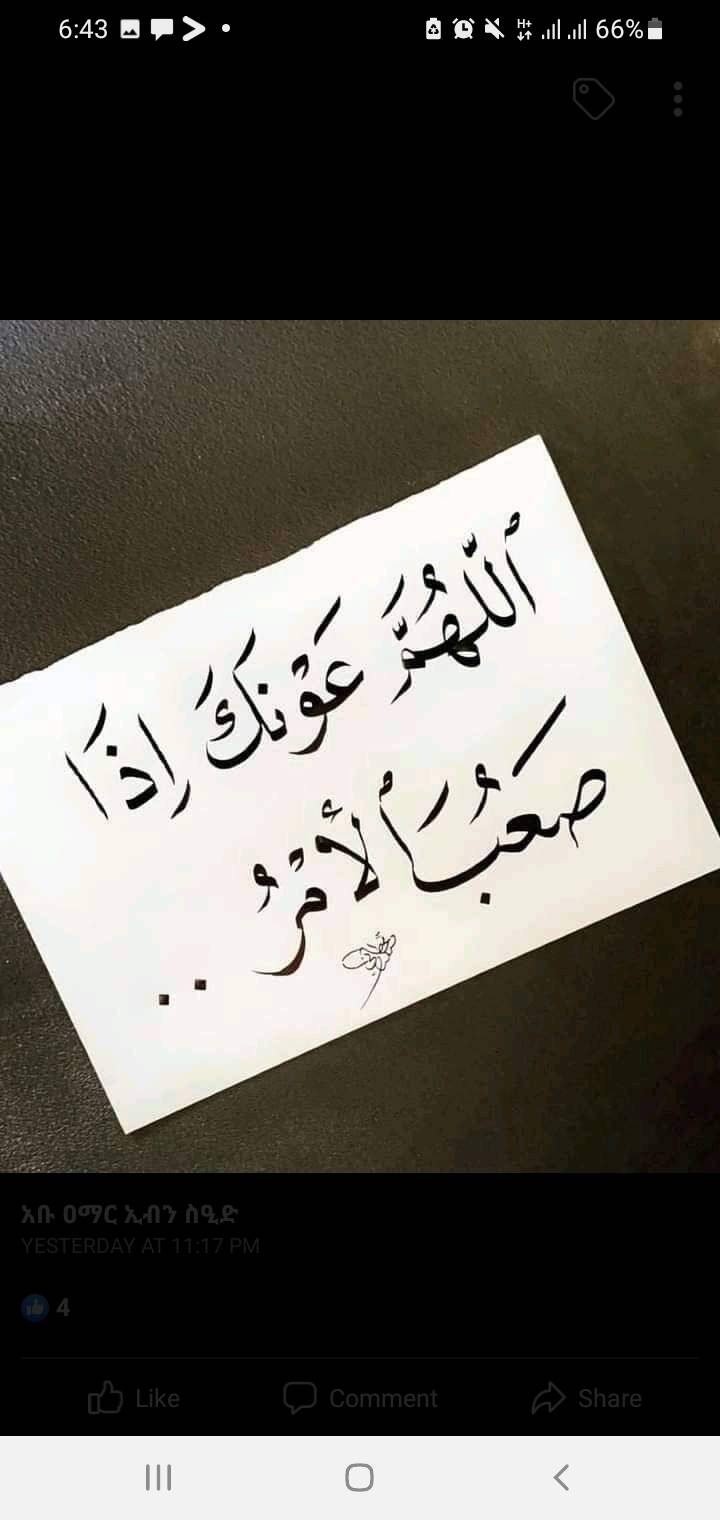 6:43
H+ 66%
ٱللّٰهُمَّ عَوْنَكَ إِذَا
صَعُبَ ٱلأَمْرُ ..
አቡ ዐማር ኢብን ስዒድ
YESTERDAY AT 11:17 PM
4
Like Comment Share